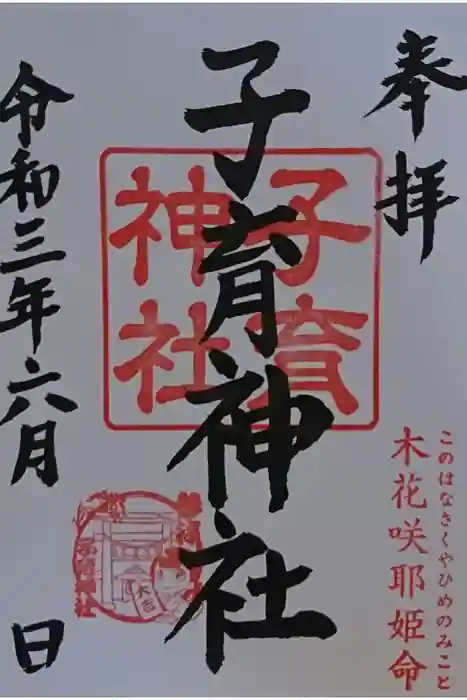 奉拝
このはなさくやひめのみこと
木花咲耶姫命
子育神社
子育
神社
令和三年六月 日